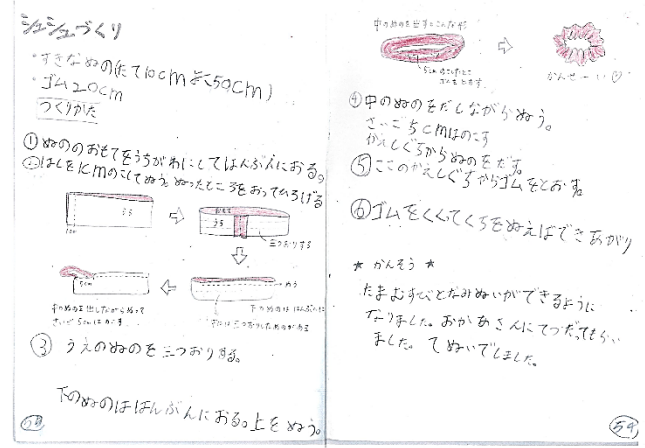 シュシュづくり
・すきなぬの(たて10cmよこ50cm)
・ゴム20cm
つくりかた
①ぬののおもてをうちがわにしてはんぶんにおる。
②はしを1cmのこしてぬう。ぬったところをおってひろげる
うら
1cm
おもて
うら
三つおりする
ぬう
下のぬのははんぶんに
5cm
中のぬのを出しながらぬって
さいご5cmはのこす
③ うえのぬのを三つおりする。
下のぬのははんぶんにおる。上をぬう。
58
中のぬのを出すとこんなかんじ
ゴムをとおす
かんせーい♡
④中のぬのをだしながらぬう。
さいご5cmはのこす
かえしぐちからぬのをだす。
⑤ここのかえしぐちからゴムをとおす。
⑥ゴムをくくてくちをぬえばできあがり
★ かんそう ★
たまむすびとなみぬいができるように
なりました。おかあさんにてつだってもらい
ました。てぬいでしました。
59